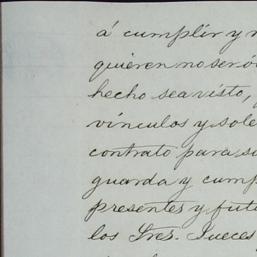 á cumplir y
quieren no ser ó
hecho sea visto,
vínculos y sole
contrato para su
guarda y cump
presentes y futu
los Sres. Jueces